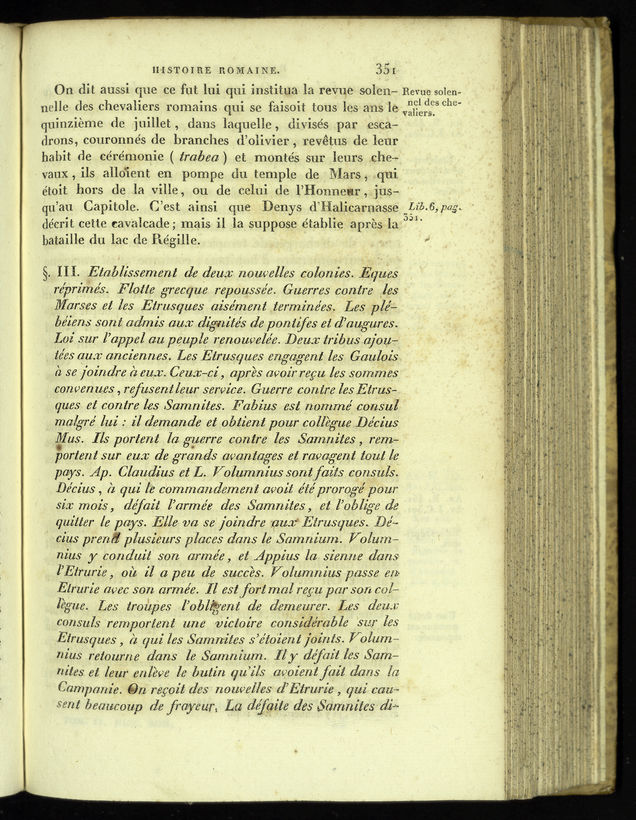 HISTOIRE ROMAINE. 351
On dit aussi que ce fut lui qui institua la revue solen-
nelle des chevaliers romains qui se faisoit tous les ans le
quinzième de juillet, dans laquelle, divisés par esca-
drons, couronnés de branches d'olivier, revêtus de leur
habit de cérémonie (trabea) et montés sur leurs che-
vaux, ils alloient en pompe du temple de Mars, qui
étoit hors de la ville, ou de celui de l'Honneur, jus-
qu'au Capitole. C'est ainsi que Denys d'Halicarnasse
décrit cette cavalcade; mais il la suppose établie après la
bataille du lac de Régille.
Revue solen-
nel des che-
valiers.
Lib. 6, pag.
351.
§. III. Etablissement de deux nouvelles colonies. Eques
réprimés. Flotte grecque repoussée. Guerres contre les
Marses et les Etrusques aisément terminées. Les plé-
béiens sont admis aux dignités de pontifes et d'augures.
Loi sur l'appel au peuple renouvelée. Deux tribus ajou-
tées aux anciennes. Les Etrusques engagent les Gaulois
à se joindre à eux. Ceux-ci, après avoir reçu les sommes
convenues, refusent leur service. Guerre contre les Etrus-
ques et contre les Samnites. Fabius est nommé consul
malgré lui : il demande et obtient pour collègue Décius
Mus. Ils portent la guerre contre les Samnites, rem-
portent sur eux de grands avantages et ravagent tout le
pays. Ap. Claudius et L. Volumnius sont faits consuls.
Décius, à qui le commandement avoit été prorogé pour
six mois, défait l'armée des Samnites, et l'oblige de
quitter le pays. Elle va se joindre aux Etrusques. Dé-
cius prend plusieurs places dans le Samnium. Volum-
nius y conduit son armée, et Appius la sienne dans
l'Etrurie, où il a peu de succès. Volumnius passe en
Etrurie avec son armée. Il est fort mal reçu par son col-
lègue. Les troupes l'obligent de demeurer. Les deux
consuls remportent une victoire considérable sur les
Etrusques, à qui les Samnites s'étoient joints. Volum-
nius retourne dans le Samnium. Il y défait les Sam-
nites et leur enlève le butin qu'ils avoient fait dans la
Campanie. On reçoit des nouvelles d'Etrurie, qui cau-
sent beaucoup de frayeur. La défaite des Samnites di-